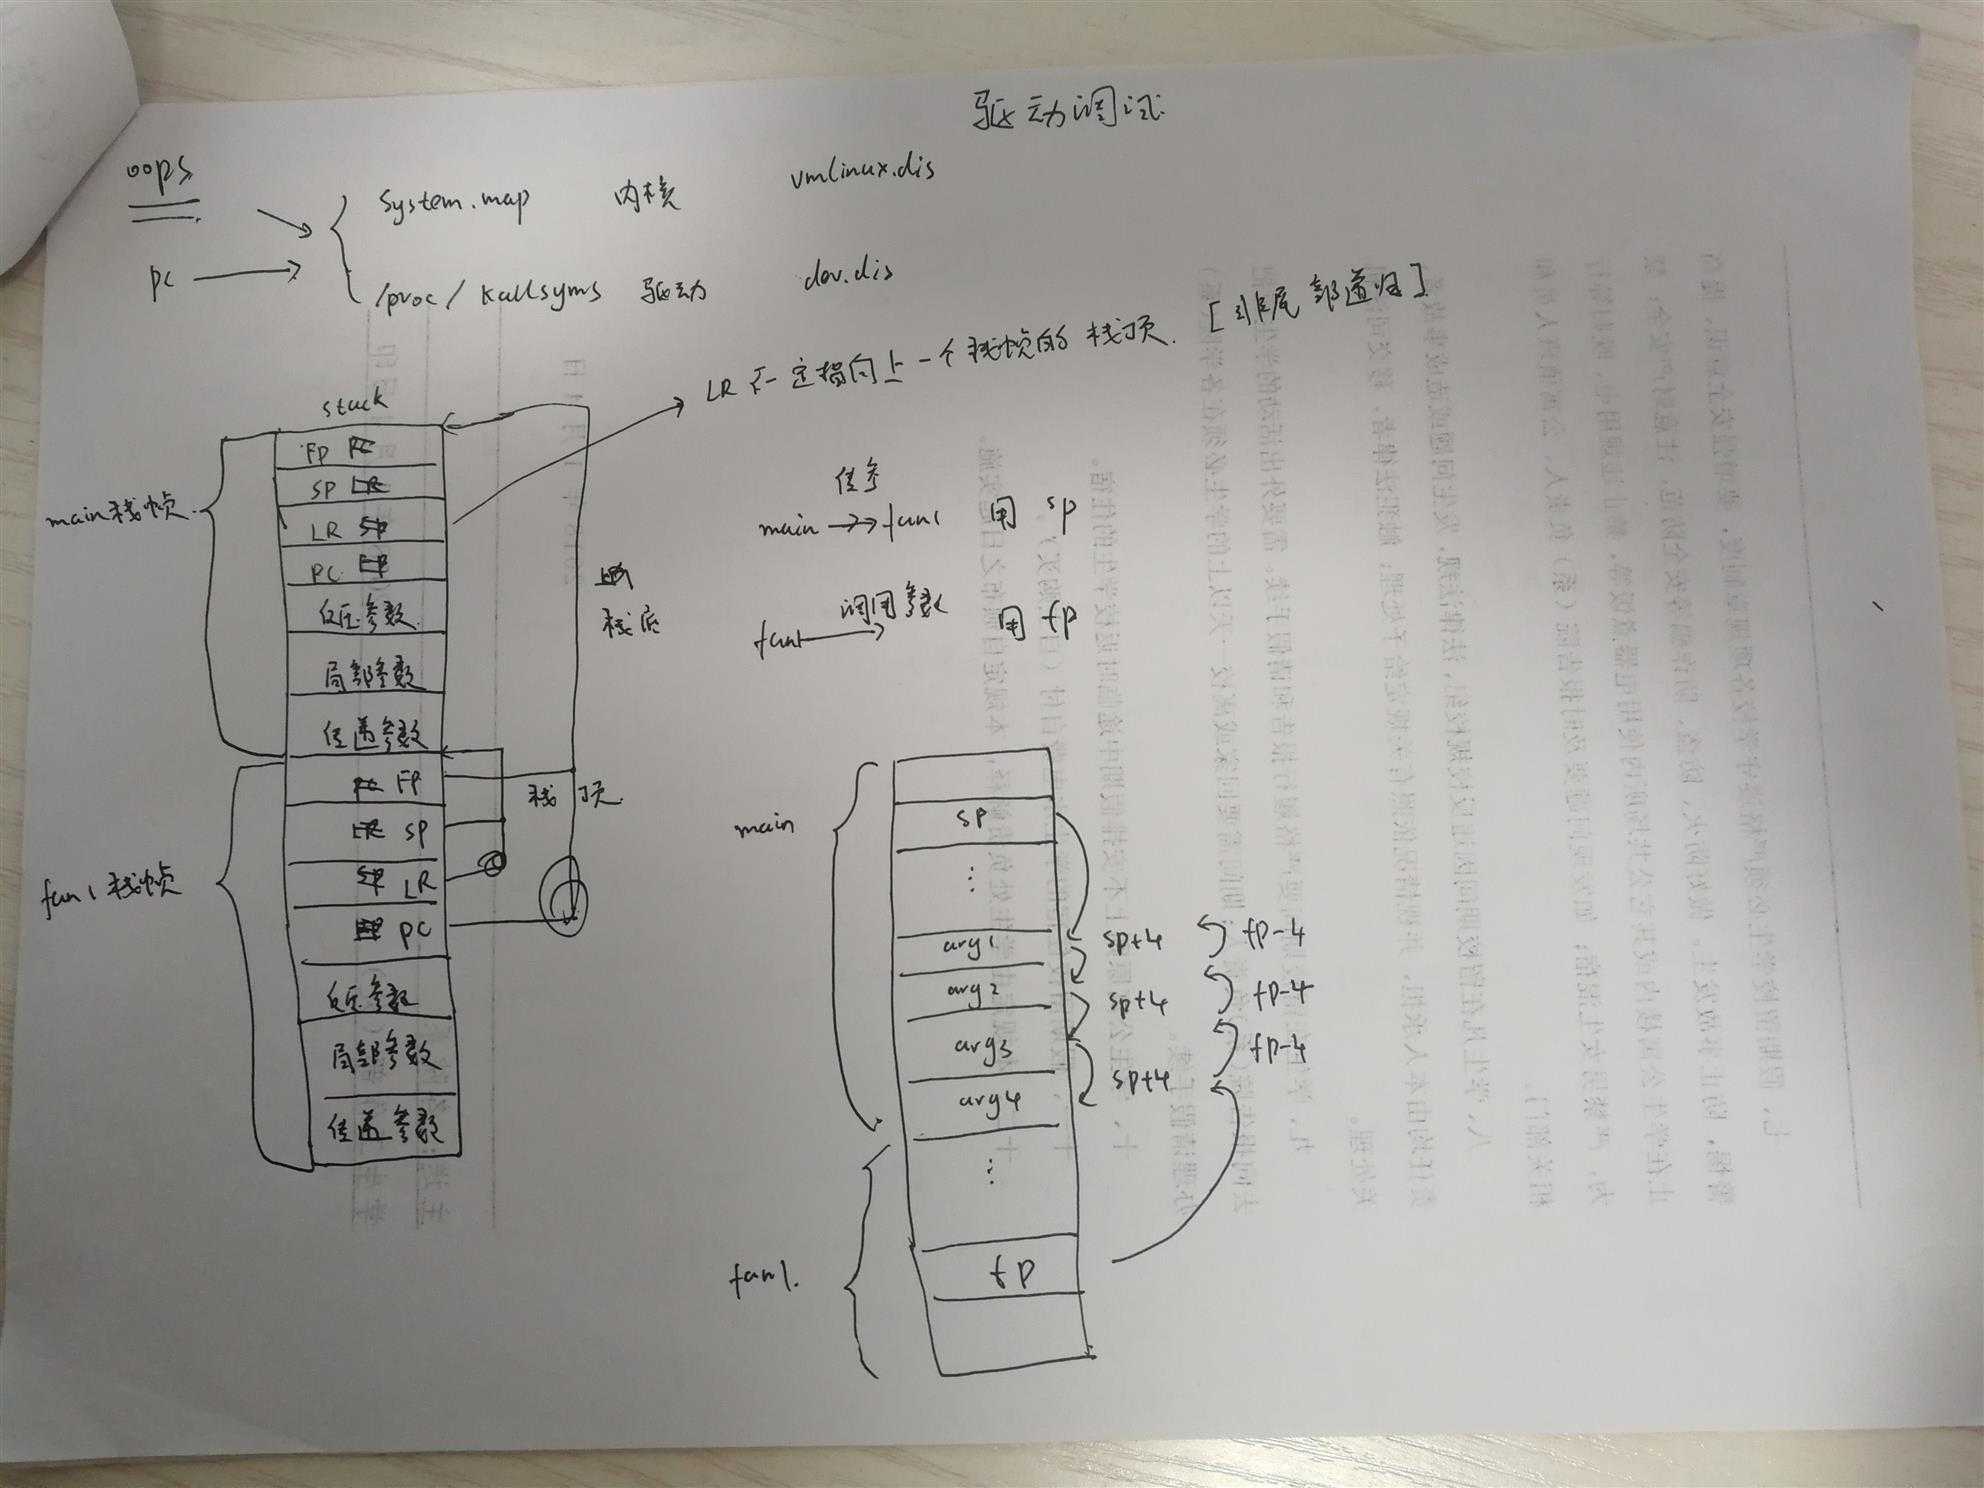 驱动调试
oops
System.map 内核 vmlinux.dis
PC
/proc/kallsyms 驱动 dev.dis
LR 不一定指向上一个栈帧的栈顶. [非尾部递归]
stack
main栈帧
FP PC
SP LR
LR SP
PC FP
参数
局部参数
传递参数
栈底
栈顶
fun1栈帧
PC FP
LR SP
SP LR
PC
参数
局部参数
传递参数
传参
main → fun1 用 sp
调用参数
fun1 用 fp
main
sp
...
arg1 sp+4 fp-4
arg2 sp+4 fp-4
arg3 sp+4 fp-4
arg4
...
fun1.
fp